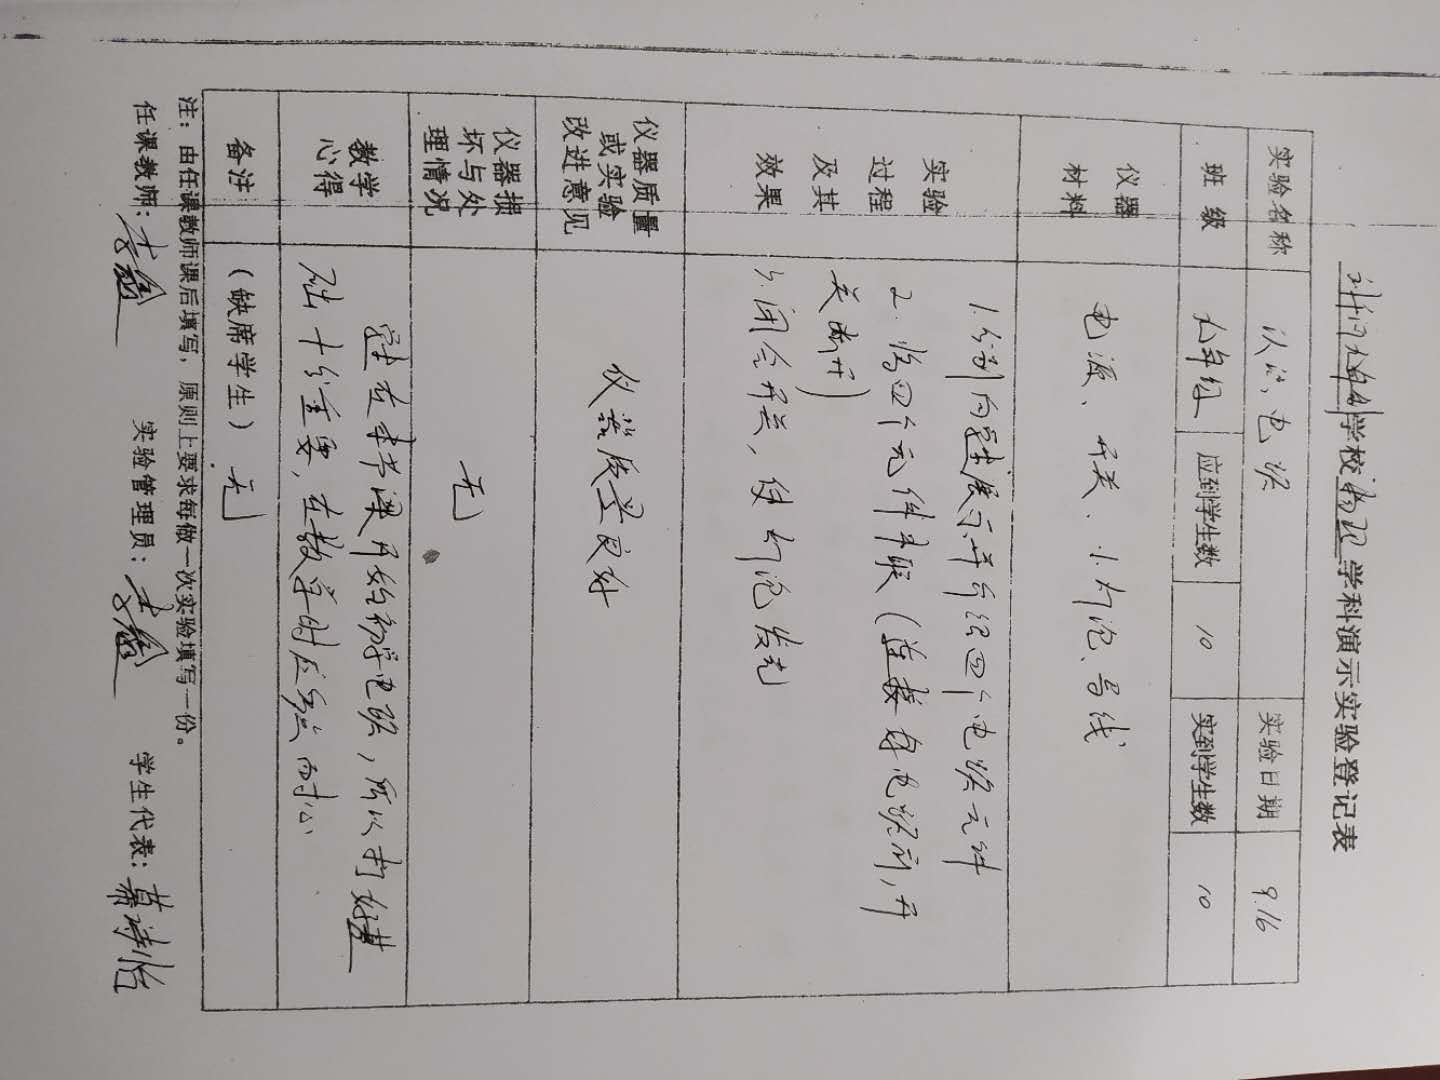 学校物理学科演示实验登记表
实验名称 认识电路 实验日期 9.16
班 级 九年级 应到学生数 10 实到学生数 10
仪器
材料
电源、开关、小灯泡、导线
实验
过程
及其
效果
1.分别向学生展示并介绍四个电路元件
2.将四个元件串联（连接身电路前,开
关断开）
3.闭合开关,使灯泡发光
仪器质量
或实验
改进意见
仪器质量良好
仪器损
坏与处
理情况
无
教学
心得
学生在本节课开始初学电路,所以打好基
础十分重要,在教学时应多些耐心
备注
（缺席学生）无
注：由任课教师课后填写，原则上要求每做一次实验填写一份。
任课教师：李鑫 实验管理员：李鑫 学生代表：慕诗怡